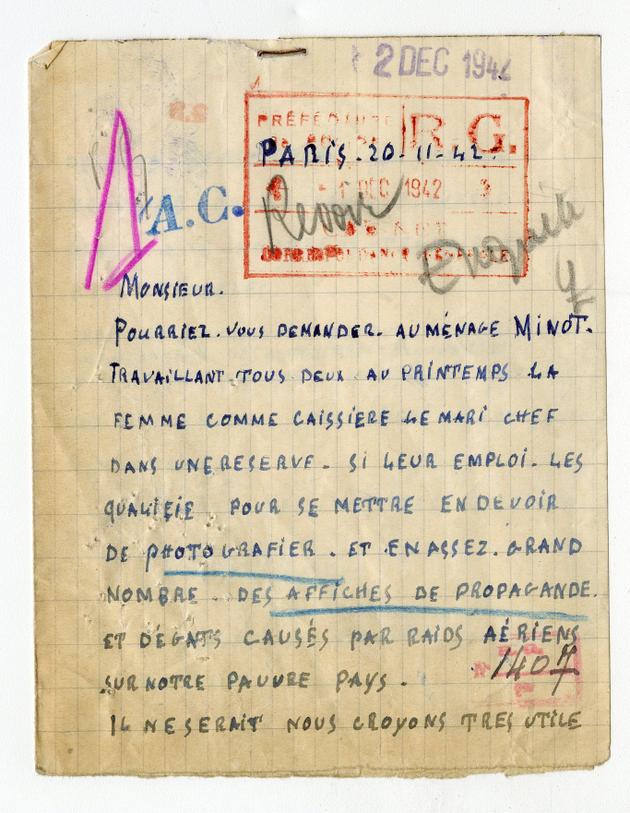 2 DEC 1942
PRÉFECTURE
R.G.
PARIS. 20-11-42.
1 DEC 1942
A.C.
Revoir
Enquête
MONSIEUR.
POURRIEZ. VOUS DEMANDER. AU MÉNAGE MINOT.
TRAVAILLANT TOUS DEUX AU PRINTEMPS LA
FEMME COMME CAISSIÈRE LE MARI CHEF
DANS UNE RESERVE. SI LEUR EMPLOI. LES
QUALIFIE POUR SE METTRE EN DEVOIR
DE PHOTOGRAFIER. ET EN ASSEZ. GRAND
NOMBRE. DES AFFICHES DE PROPAGANDE.
ET DÉGATS CAUSÉS PAR RAIDS AÉRIENS
1407
SUR NOTRE PAUVRE PAYS.
IL NE SERAIT NOUS CROYONS TRES UTILE